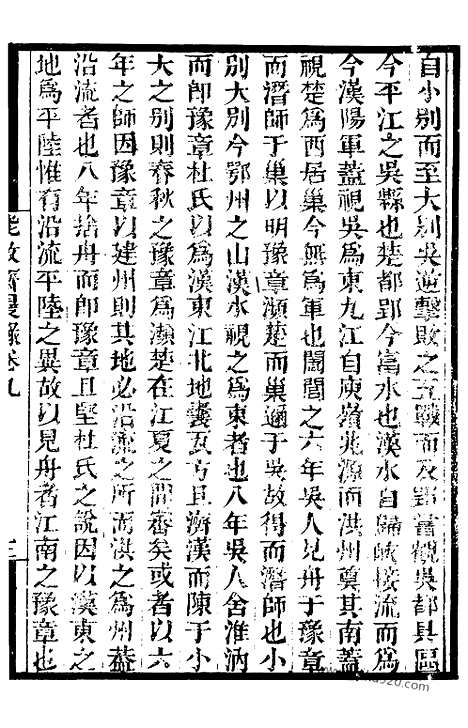 自小别而至大别吳逆擊敗之五戰而及郢嘗觀吳都具區
今平江之吳縣也楚都郢今富水也漢水自嶓皒接流而為
今漢陽軍蓋視吳為東九江自庾嶺兆源而洪州奠其南蓋
視楚為西居巢今無為軍也闔閭之六年吳人見舟于豫章
而潛師于巢以明豫章瀕楚而巢邇于吳故得而潛師也小
别大别今鄂州之山漢水視之為東者也八年吳人舍淮汭
而即豫章杜氏以為漢東江北地嚢亥亏且濟漢而陳于小
大之别則春秋之豫章為瀕楚在江夏之間審矣或者以六
年之師因豫章以建州則其地必沿流之所而洪之為州葢
地為平陸惟有沿流平陸之異故以見舟者江南之豫章也
沿流者也八年捨舟而即豫章且堅杜氏之說因以漢東之
能改齋漫錄卷九